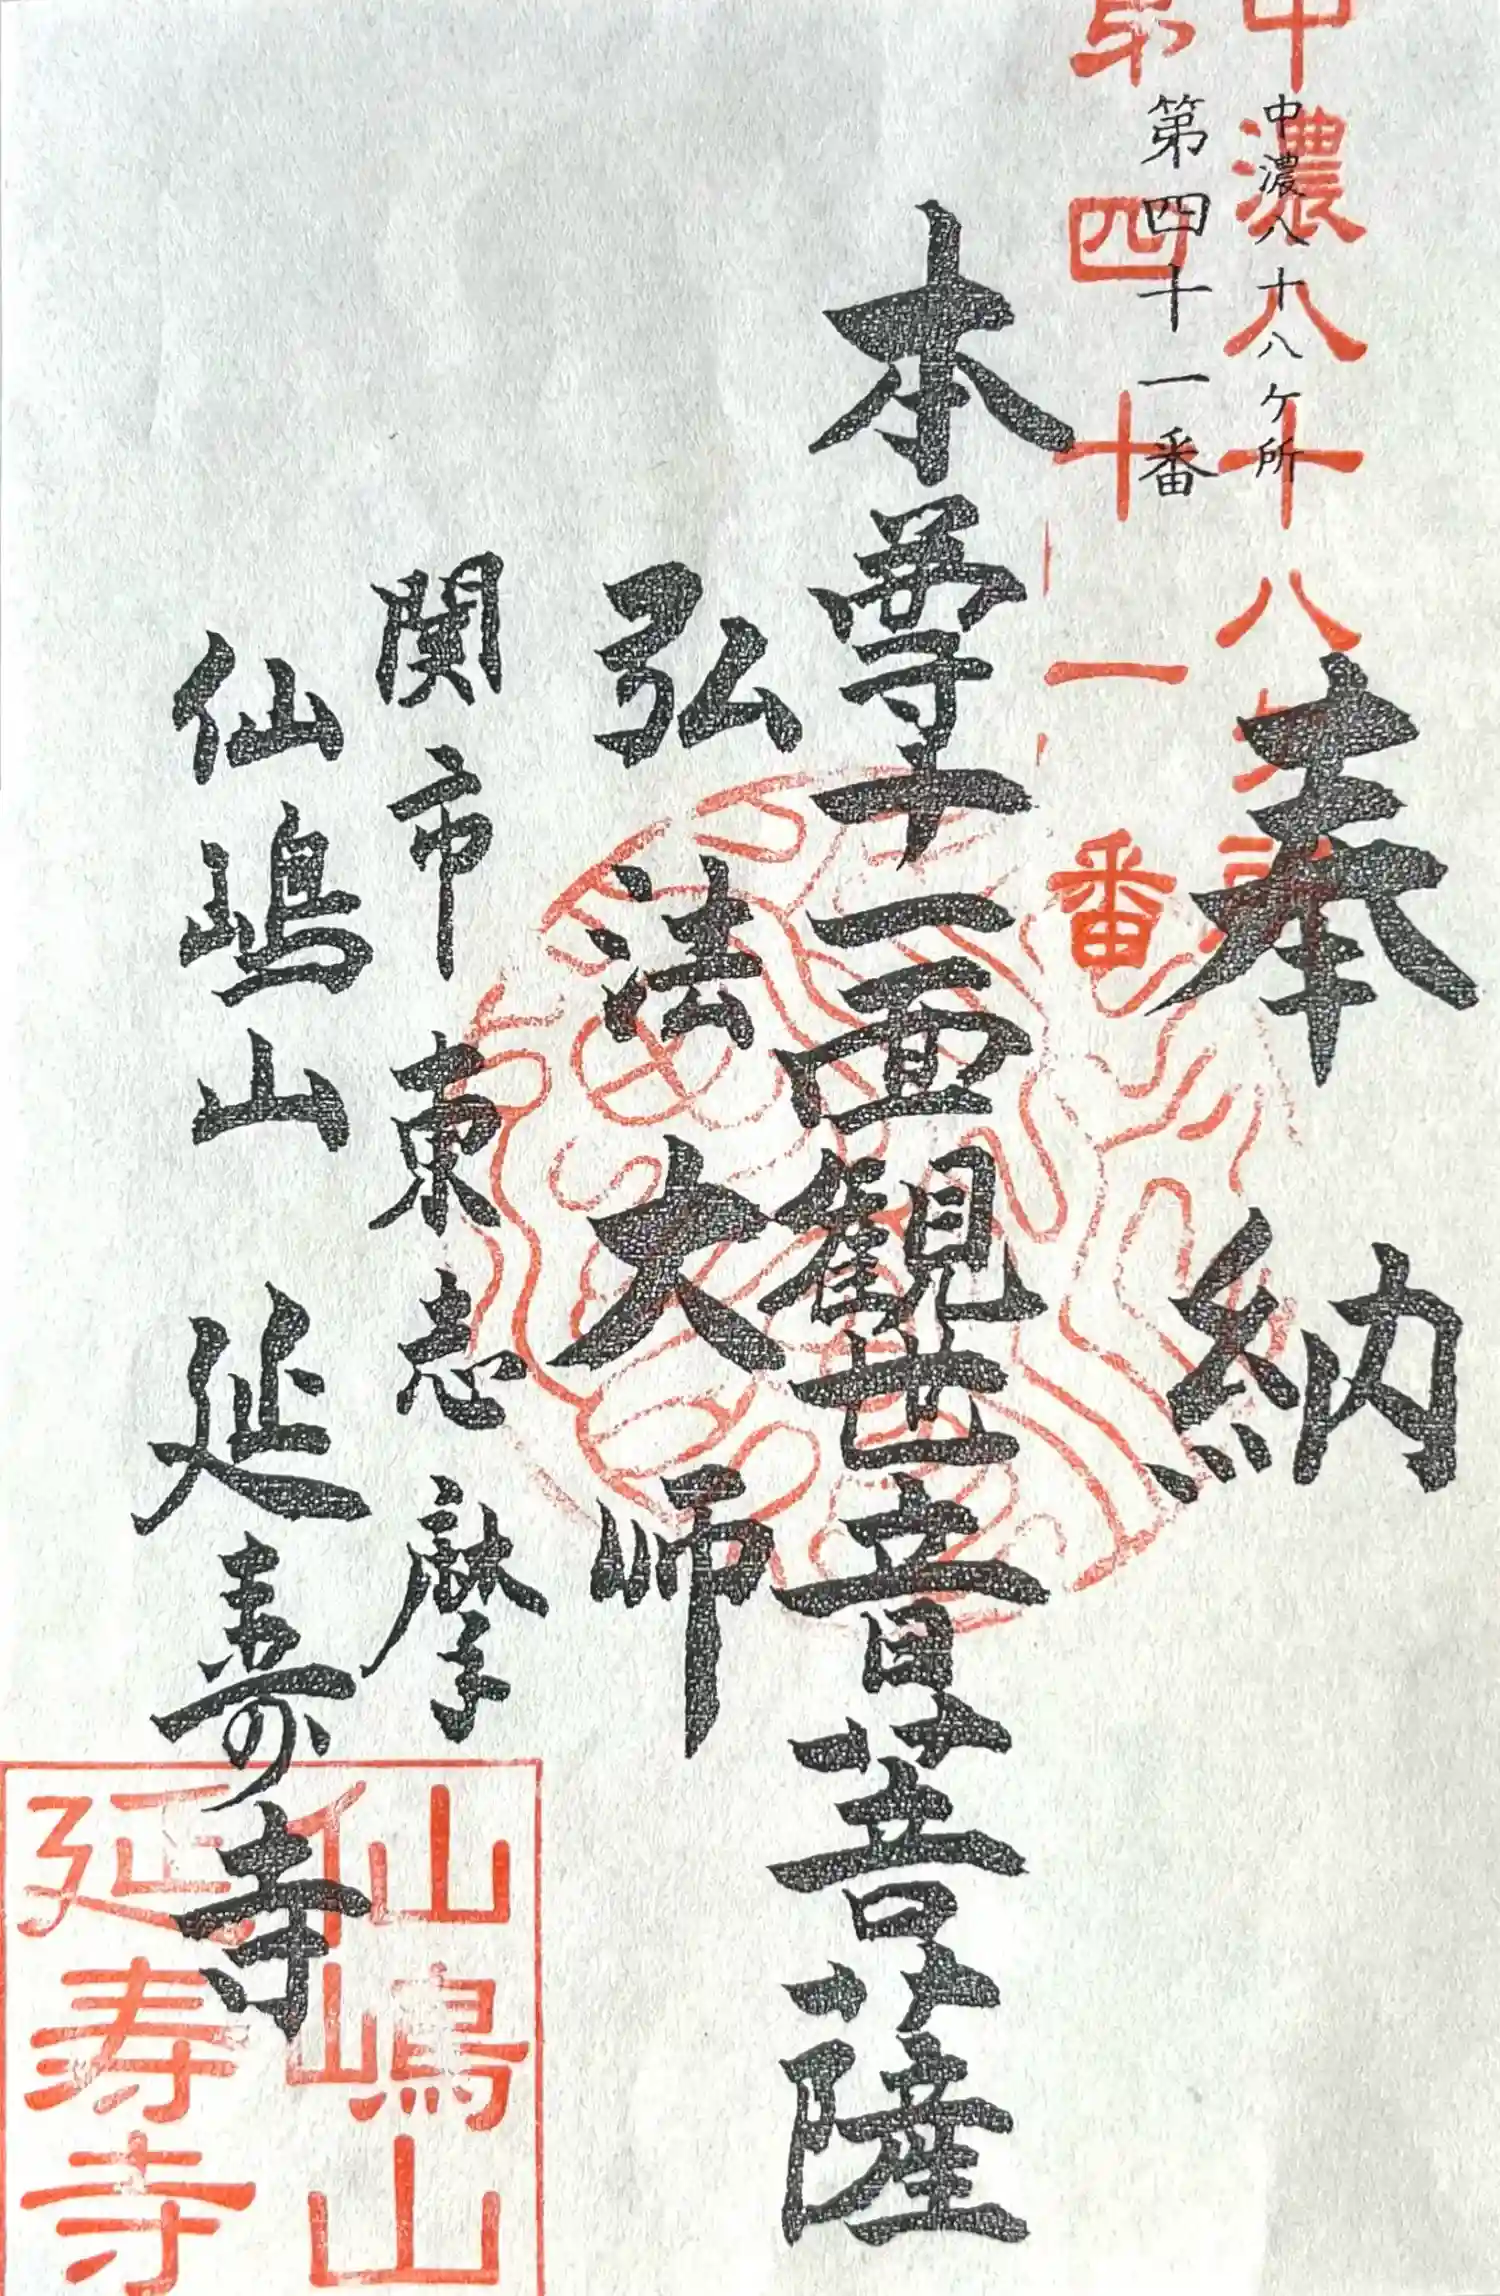 中濃八十八ケ所
第四十一番
奉納
本尊十一面観世音菩薩
弘法大師
関市東志摩
仙嶋山延寿寺
中濃八十八
第四十一番
仙嶋山
延寿寺